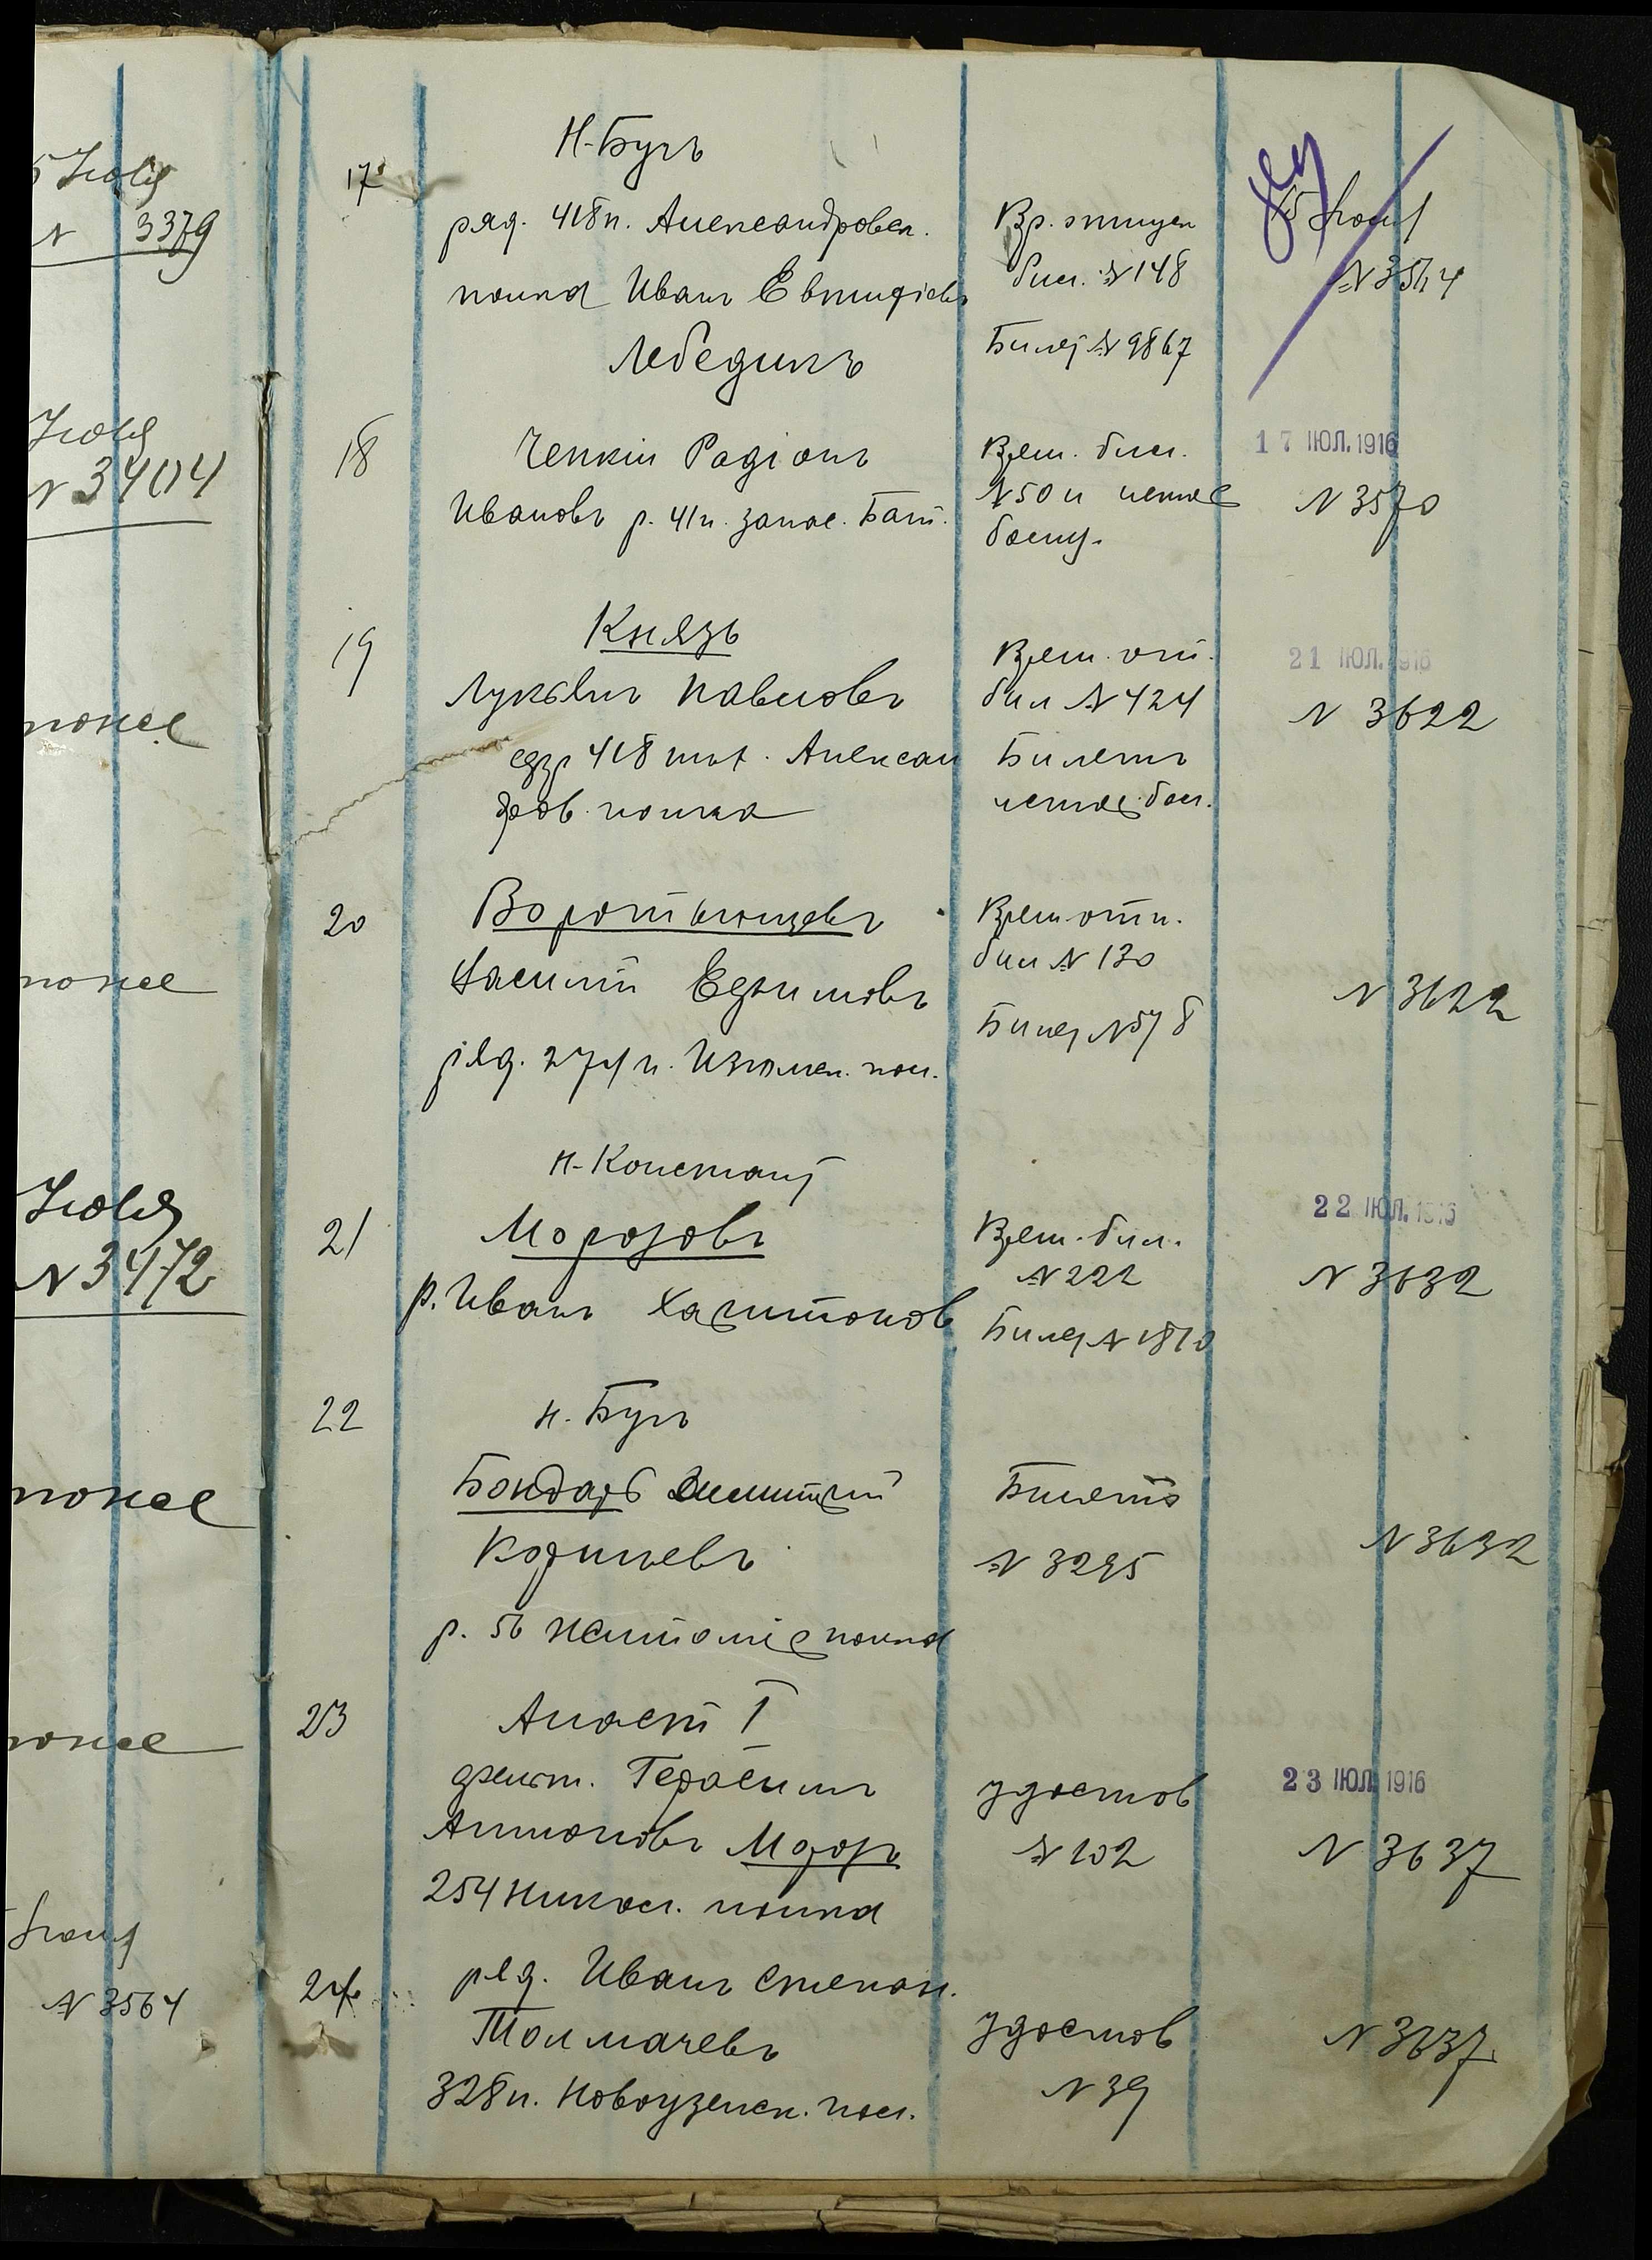 5 Іюля
N 3379
Іюля
N 3404
тоже
тоже
Іюля
N 3472
тоже
тоже
N 3564
Н-Бугъ
17
ряд. 418 п. Александровск.
полка Иванъ Евтифіевъ
Лебединъ
Вр. отпуск
бил. №148
Билет № 9867
15 Іюля
№ 3564
18
Чепкин Радіонъ
Ивановъ р. 41 п. запас. Бат.
Врем. бил.
№ 50 и
17 ІЮЛ. 1916
N 3570
19
Князь
Лукьянъ Павловъ
418 пѣх. Алексан
дров. полка
Врем. от.
бил № 424
Билетъ
21 ІЮЛ. 1916
N 3622
20
Воротынцевъ
Василій Ефимовъ
ряд. 274 п. Изюмск. пол.
Врем отп.
бил № 130
Билет № 578
N 3622
н-Констант
21
Морозовъ
р. Иванъ Харитонов
Врем. бил.
№ 222
Билет № 1810
22 ІЮЛ. 1916
N 3632
22
н. Бугъ
Бондарь Дмитрий
Корнеевъ
р. 56 Житомір полка
Билетъ
№ 3295
N 3632
23
Анаст I
Герасимъ
Антоновъ Мороз
254 Никол. полка
удостов
№ 102
23 ІЮЛ. 1916
N 3637
24
ряд. Иванъ Степан.
Толмачевъ
328 п. Новоузенск. пол.
удостов
N 39
N 3637